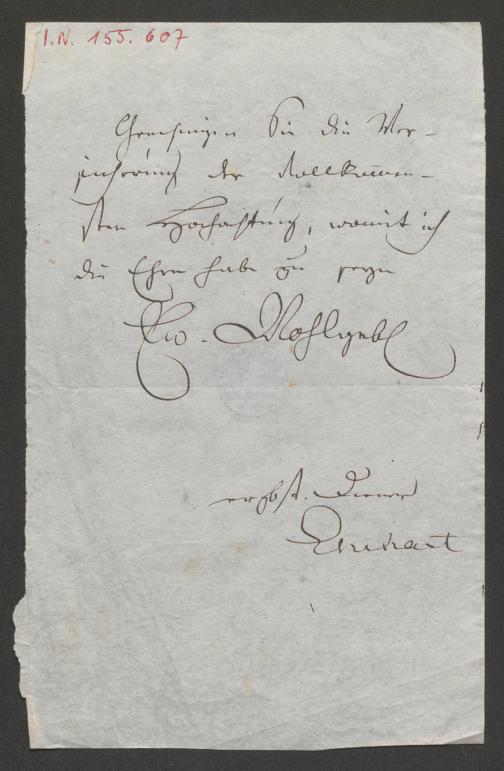 I.N. 155.607
Genehmigen Sie die Ver-
sicherung der vollkommen-
sten Hochachtung, womit ich
die Ehre habe zu seyn
Ew. Wohlgeb
ergbst. Diener